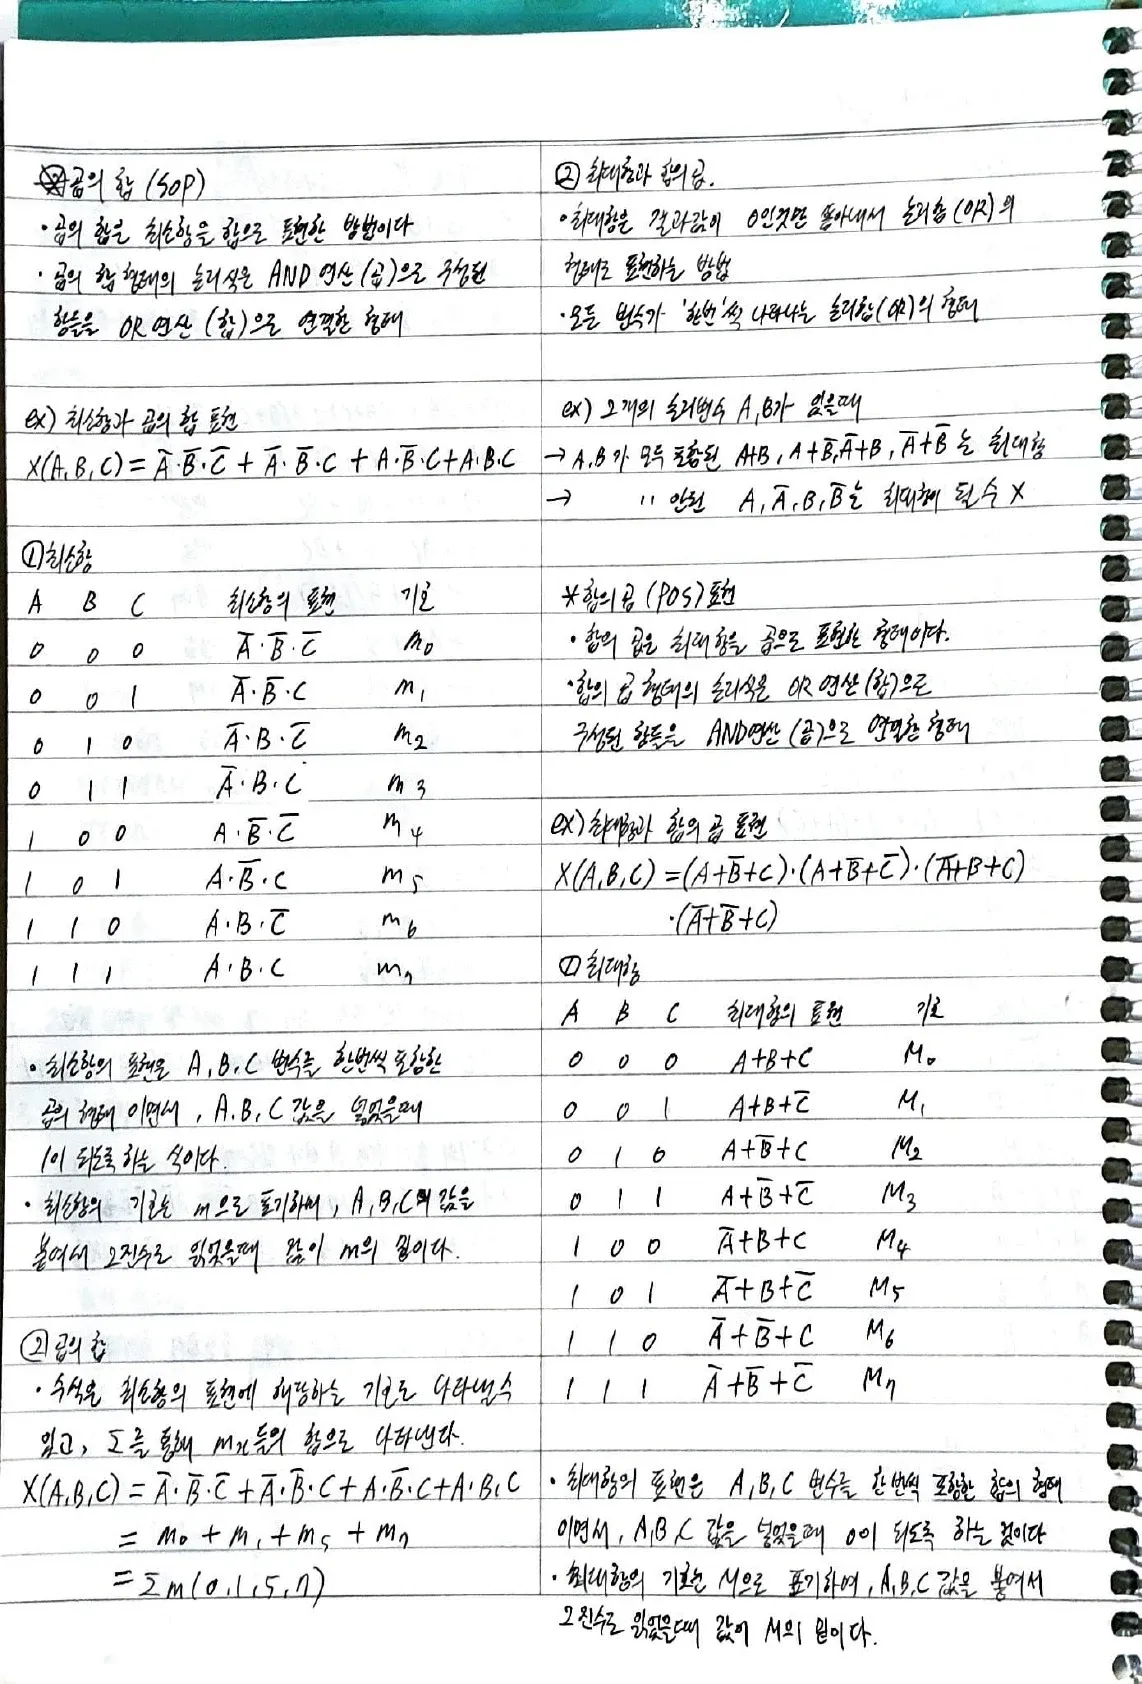 ※곱의 합 (SOP)
· 곱의 합은 최소항을 합으로 표현한 방법이다
· 곱의 합 형태의 논리식은 AND 연산 (곱)으로 구성된
항들을 OR 연산 (합)으로 연결한 형태
ex) 최소항과 곱의 합 표현
X(A,B,C) = A̅·B̅·C̅ + A̅·B̅·C + A·B̅·C + A·B·C
① 최소항
A B C 최소항의 표현 기호
0 0 0 A̅·B̅·C̅ m₀
0 0 1 A̅·B̅·C m₁
0 1 0 A̅·B·C̅ m₂
0 1 1 A̅·B·C m₃
1 0 0 A·B̅·C̅ m₄
1 0 1 A·B̅·C m₅
1 1 0 A·B·C̅ m₆
1 1 1 A·B·C m₇
· 최소항의 표현은 A,B,C 변수를 한번씩 포함한
곱의 형태 이면서, A,B,C 값을 넣었을때
1이 되도록 하는 식이다.
· 최소항의 기호는 m으로 표기하며, A,B,C의 값을
붙여서 2진수로 읽었을때 값이 m의 밑이다.
② 곱의 합
· 수식은 최소항의 표현에 해당하는 기호로 나타낼수
있고, Σ를 통해 m들의 합으로 나타낸다.
X(A,B,C) = A̅·B̅·C̅ + A̅·B̅·C + A·B̅·C + A·B·C
= m₀ + m₁ + m₅ + m₇
= Σm(0,1,5,7)
② 최대항과 합의 곱.
· 최대항은 결과값이 0인것만 뽑아내서 논리합(OR)의
형태로 표현하는 방법
· 모든 변수가 '한번'씩 나타나는 논리합(OR)의 형태
ex) 2개의 논리변수 A,B가 있을때
→ A,B가 모두 포함된 A+B, A+B̅, A̅+B, A̅+B̅ 는 최대항
→ 〃 안된 A, A̅, B, B̅는 최대항이 될 수 X
※합의 곱 (POS) 표현
· 합의 곱은 최대항을 곱으로 표현한 형태이다.
· 합의 곱 형태의 논리식은 OR 연산 (합)으로
구성된 항들을 AND연산 (곱)으로 연결한 형태
ex) 최대항과 합의 곱 표현
X(A,B,C) = (A+B̅+C)·(A+B̅+C̅)·(A̅+B+C)
·(A̅+B̅+C)
① 최대항
A B C 최대항의 표현 기호
0 0 0 A+B+C M₀
0 0 1 A+B+C̅ M₁
0 1 0 A+B̅+C M₂
0 1 1 A+B̅+C̅ M₃
1 0 0 A̅+B+C M₄
1 0 1 A̅+B+C̅ M₅
1 1 0 A̅+B̅+C M₆
1 1 1 A̅+B̅+C̅ M₇
· 최대항의 표현은 A,B,C 변수를 한번씩 포함한 합의 형태
이면서, A,B,C 값을 넣었을때 0이 되도록 하는 것이다
· 최대항의 기호는 M으로 표기하며, A,B,C 값을 붙여서
2진수로 읽었을때 값이 M의 밑이다.